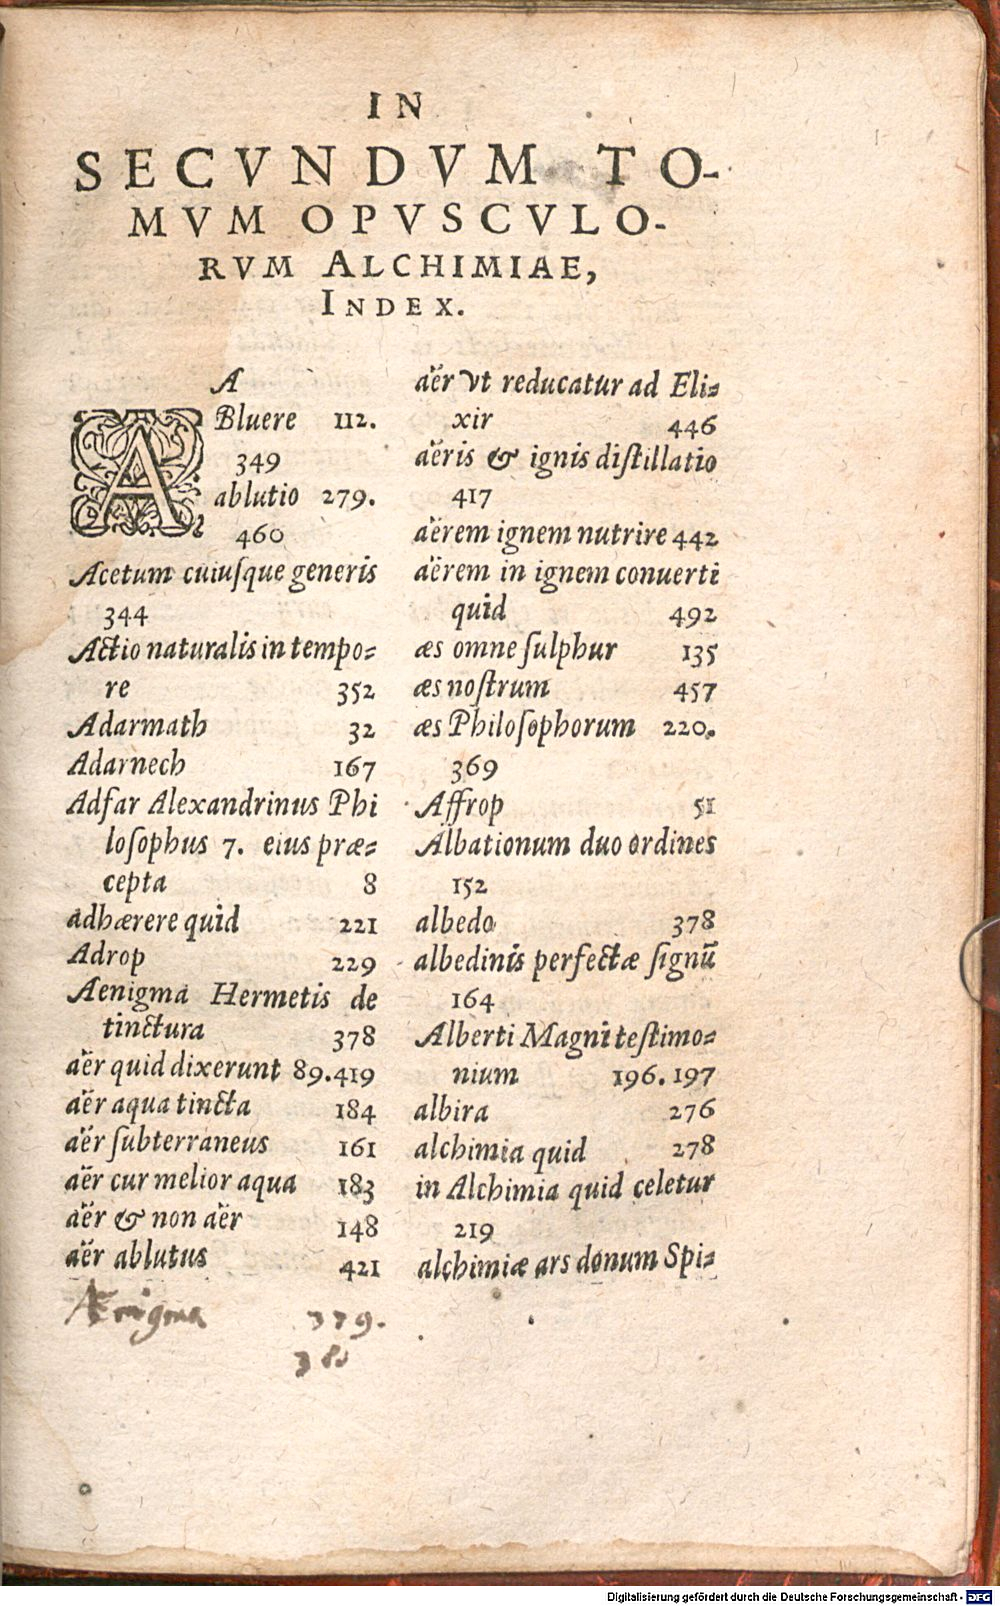 IN
SECVNDVM TO-
MVM OPVSCVLO-
RVM ALCHIMIAE,
INDEX.
A
ABluere 112.
349
ablutio 279.
460
Acetum cuiuſque generis
344
Actio naturalis in tempo-
re 352
Adarmath 32
Adarnech 167
Adfar Alexandrinus Phi
loſophus 7. eius præ-
cepta 8
adhærere quid 221
Adrop 229
Aenigma Hermetis de
tinctura 378
aër quid dixerunt 89.419
aër aqua tincta 184
aër ſubterraneus 161
aër cur melior aqua 183
aër & non aër 148
aër ablutus 421
Ænigma 379.
380
aër vt reducatur ad Eli-
xir 446
aëris & ignis diſtillatio
417
aërem ignem nutrire 442
aërem in ignem conuerti
quid 492
æs omne ſulphur 135
æs noſtrum 457
æs Philoſophorum 220.
369
Affrop 51
Albationum duo ordines
152
albedo 378
albedinis perfectæ ſignũ
164
Alberti Magni teſtimo-
nium 196. 197
albira 276
alchimia quid 278
in Alchimia quid celetur
219
alchimiæ ars donum Spi-
Digitalisierung gefördert durch die Deutsche Forschungsgemeinschaft - DFG